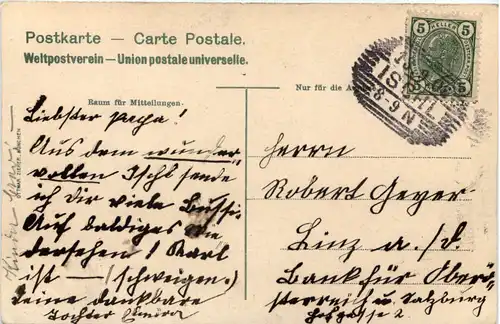 Postkarte — Carte Postale.
Weltpostverein — Union postale universelle.
5 HELLER 5
ISCHL
8-9 N
Raum für Mitteilungen.
Nur für die
Liebster Papa!
Aus dem wunder
vollen Ischl sende
ich dir viele Bussi
Auf baldiges Wie
dersehen! Karl
ist — (schweigen.)
Deine dankbare
Tochter
Herrn
Robert Geyer
Linz a./d.
Bank für Oberö-
sterreich u. Salzburg